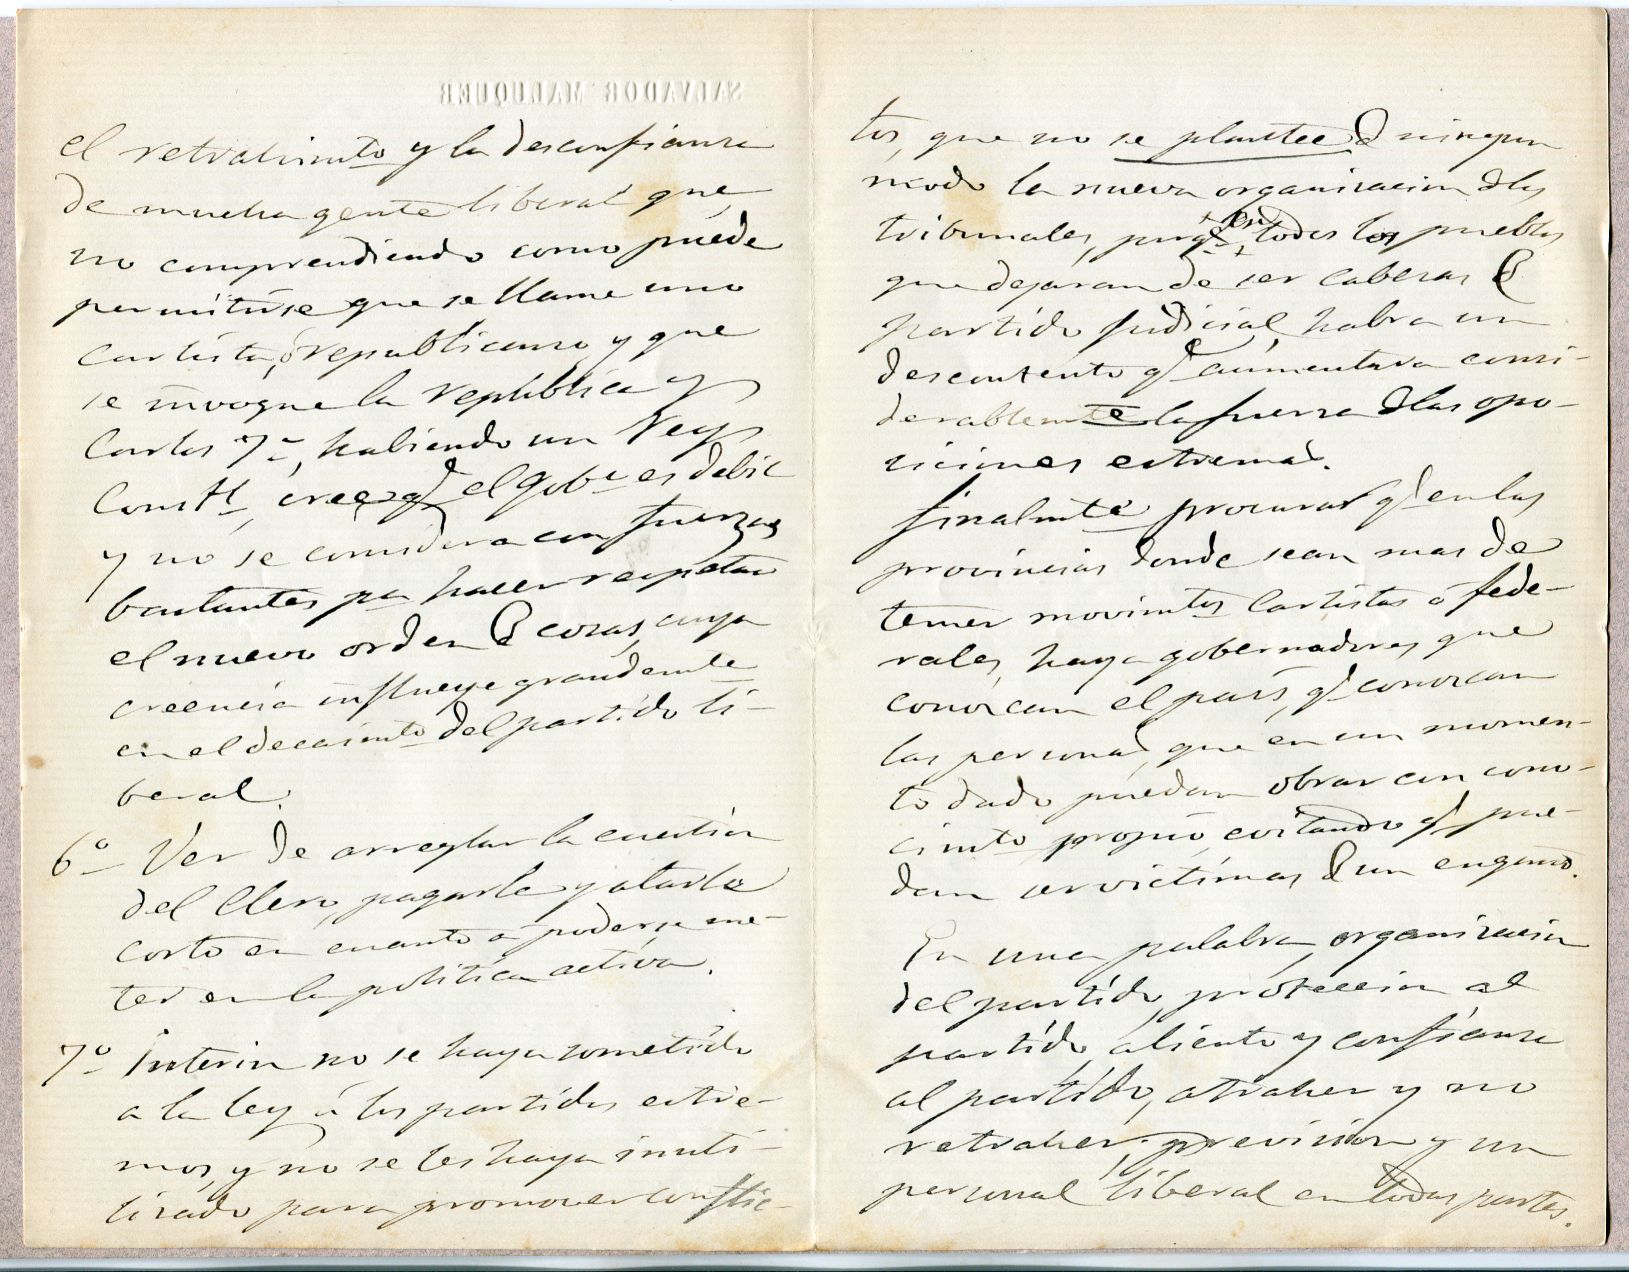 SALVADOR MALUQUER
el retrahimto y la desconfianza
de mucha gente liberal que,
no comprendiendo como puede
permitirse que se llame uno
carlista, ó republicano y que
se invoque la república y
Carlos 7º, habiendo un Rey
Constl, cree q el Gobno es debil
y no se considera con fuerzas
bastantes pa hacer respetar
el nuevo orden de cosas, cuya
creencia influye grandemte
en el decaimto del partido li-
beral.
6º Ver de arreglar la cuestion
del Clero, pagarle y atarle
corto en cuanto á poderse me-
ter en la politica activa.
7º Interin no se haya sometido
a la ley á los partidos estre-
mos, y no se les haya inuti-
lizado para promover conflic-
tos, que no se plantee de ningun
modo la nueva organizacion de los
tribunales, porq en todos los pueblos
que dejaran de ser cabezas de
partido judicial, habra un
descontento q aumentara consi-
derablemente la fuerza de las opo-
siciones estremas.
Finalmte procurar q en las
provincias donde sean mas de
temer movimtos carlistas ó fede-
rales, haya gobernadores que
conozcan el pais, q conozcan
las personas, que en un momen-
to dado puedan obrar con cono-
cimto propio, evitando q pue-
dan ser victimas de un engaño.
En una palabra, organizacion
del partido, proteccion al
partido, aliento y confianza
al partido, atraher y no
retraher, prevision y un
personal liberal en todas partes.